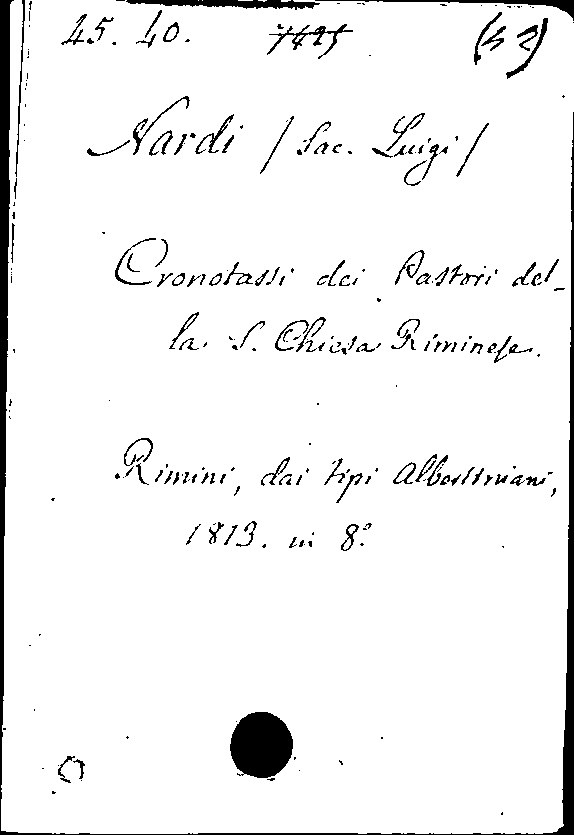 45. 40. 7425 (52)
Nardi / Sac. Luigi /
Cronotassi dei Pastori del-
la S. Chiesa Riminese.
Rimini, dai tipi Albertiniani,
1813. in 8.°